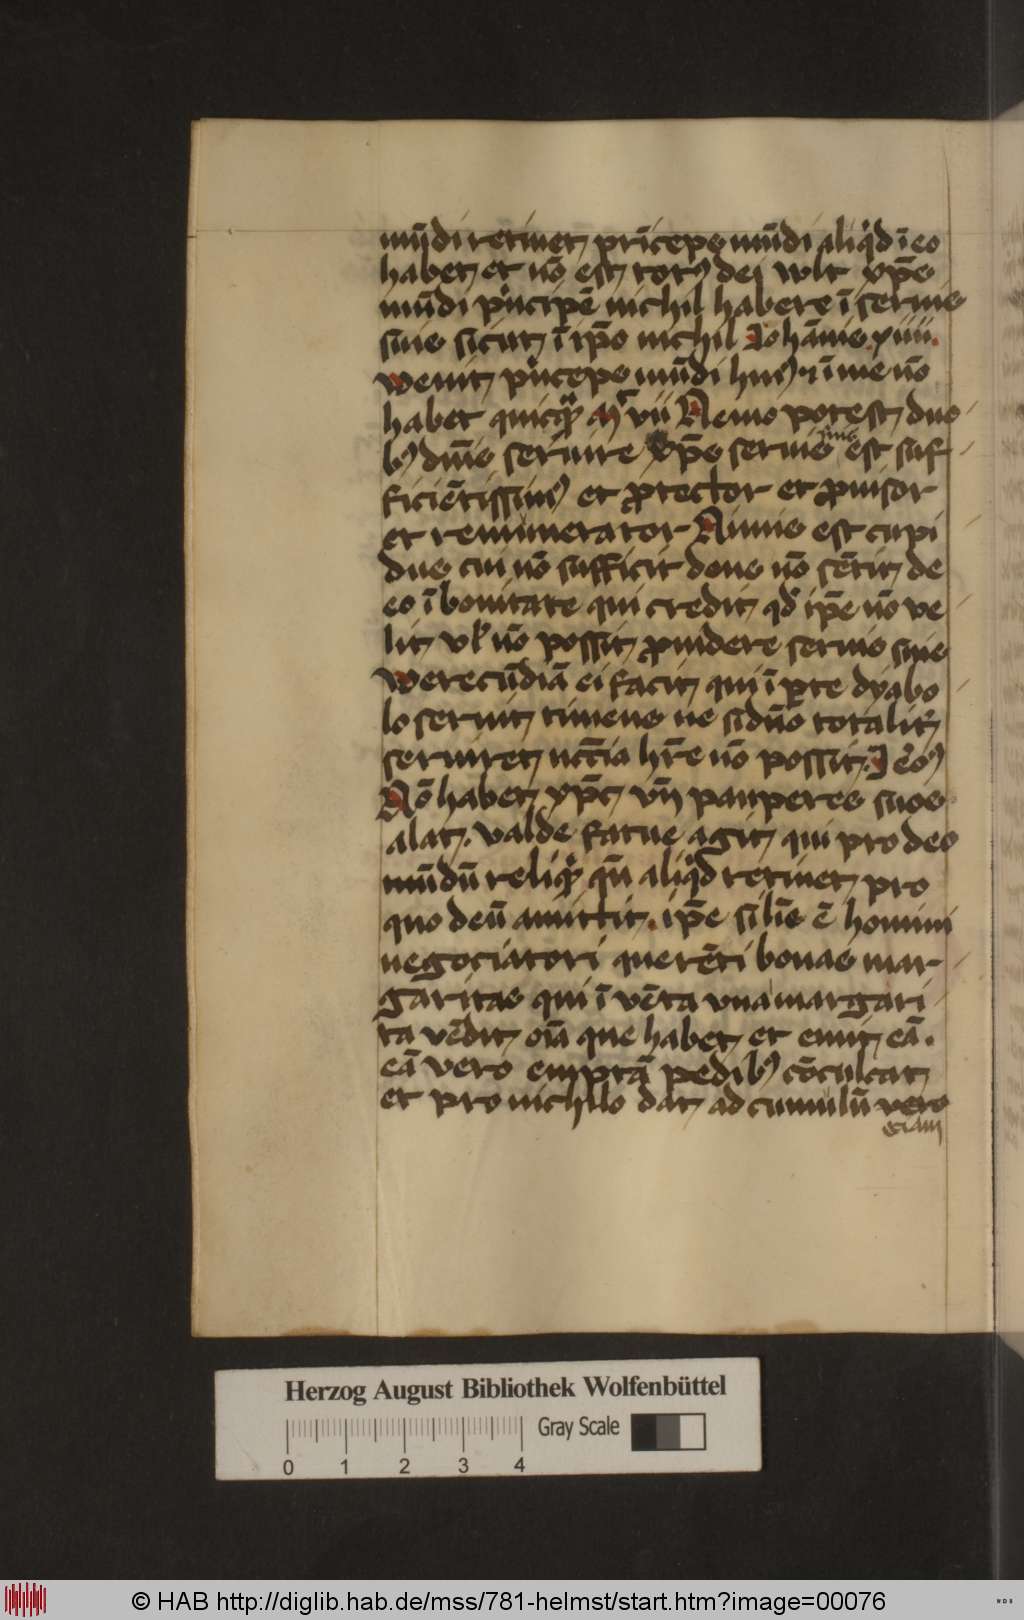 mūdi retinet pri̅ceps mūdi aliqͥd ī eo
habet et nō est totꝰ dei wlt xp̄s
mūdi pͥncipē nichil habere ī seruis
suis sicut ī ip̄o nichil Johānis xiiii.
Wenit pͥnceps mūdi huiꝰ ⁊ ī me nō
habet quicqᷓꝫ Mͭ vii Nemo potest duo
bꝰ dn̄is seruire xp̄s seruis suis est suf
ficiētissimꝰ et ꝓtector et ꝓuisor
et remunerator Nimis est cupi
dus cui nō sufficit deus nō sētit de
eo ī bonitate qui credit qd̓ ip̄e nō ve
lit vl̓ nō possit ꝓuidere seruo suis
Werecūdiā ei facit qui ī ꝑte dyabo
lo seruit timens ne si dn̄o totalit̓
seruiret nc̄c̄ia hr̄e nō possit. J
Nō habet xp̄c vn̄ pauperes suos
alat. valde fatue agit qui pro deo
mūdū reliqͥt qn̄ aliqͥd retinet pro
quo deū amittit. ip̄e sil̄is ē homini
negociatori querēti bonas mar
garitas qui ī vēta vna margari
ta vēdit oīa que habet et emit eā.
eā vero emptā pedibꝰ cōculcat
et pro nichilo dat ad cumulū vero
eciam
Herzog August Bibliothek Wolfenbüttel
0 1 2 3 4 Gray Scale
© HAB http://diglib.hab.de/mss/781-helmst/start.htm?image=00076